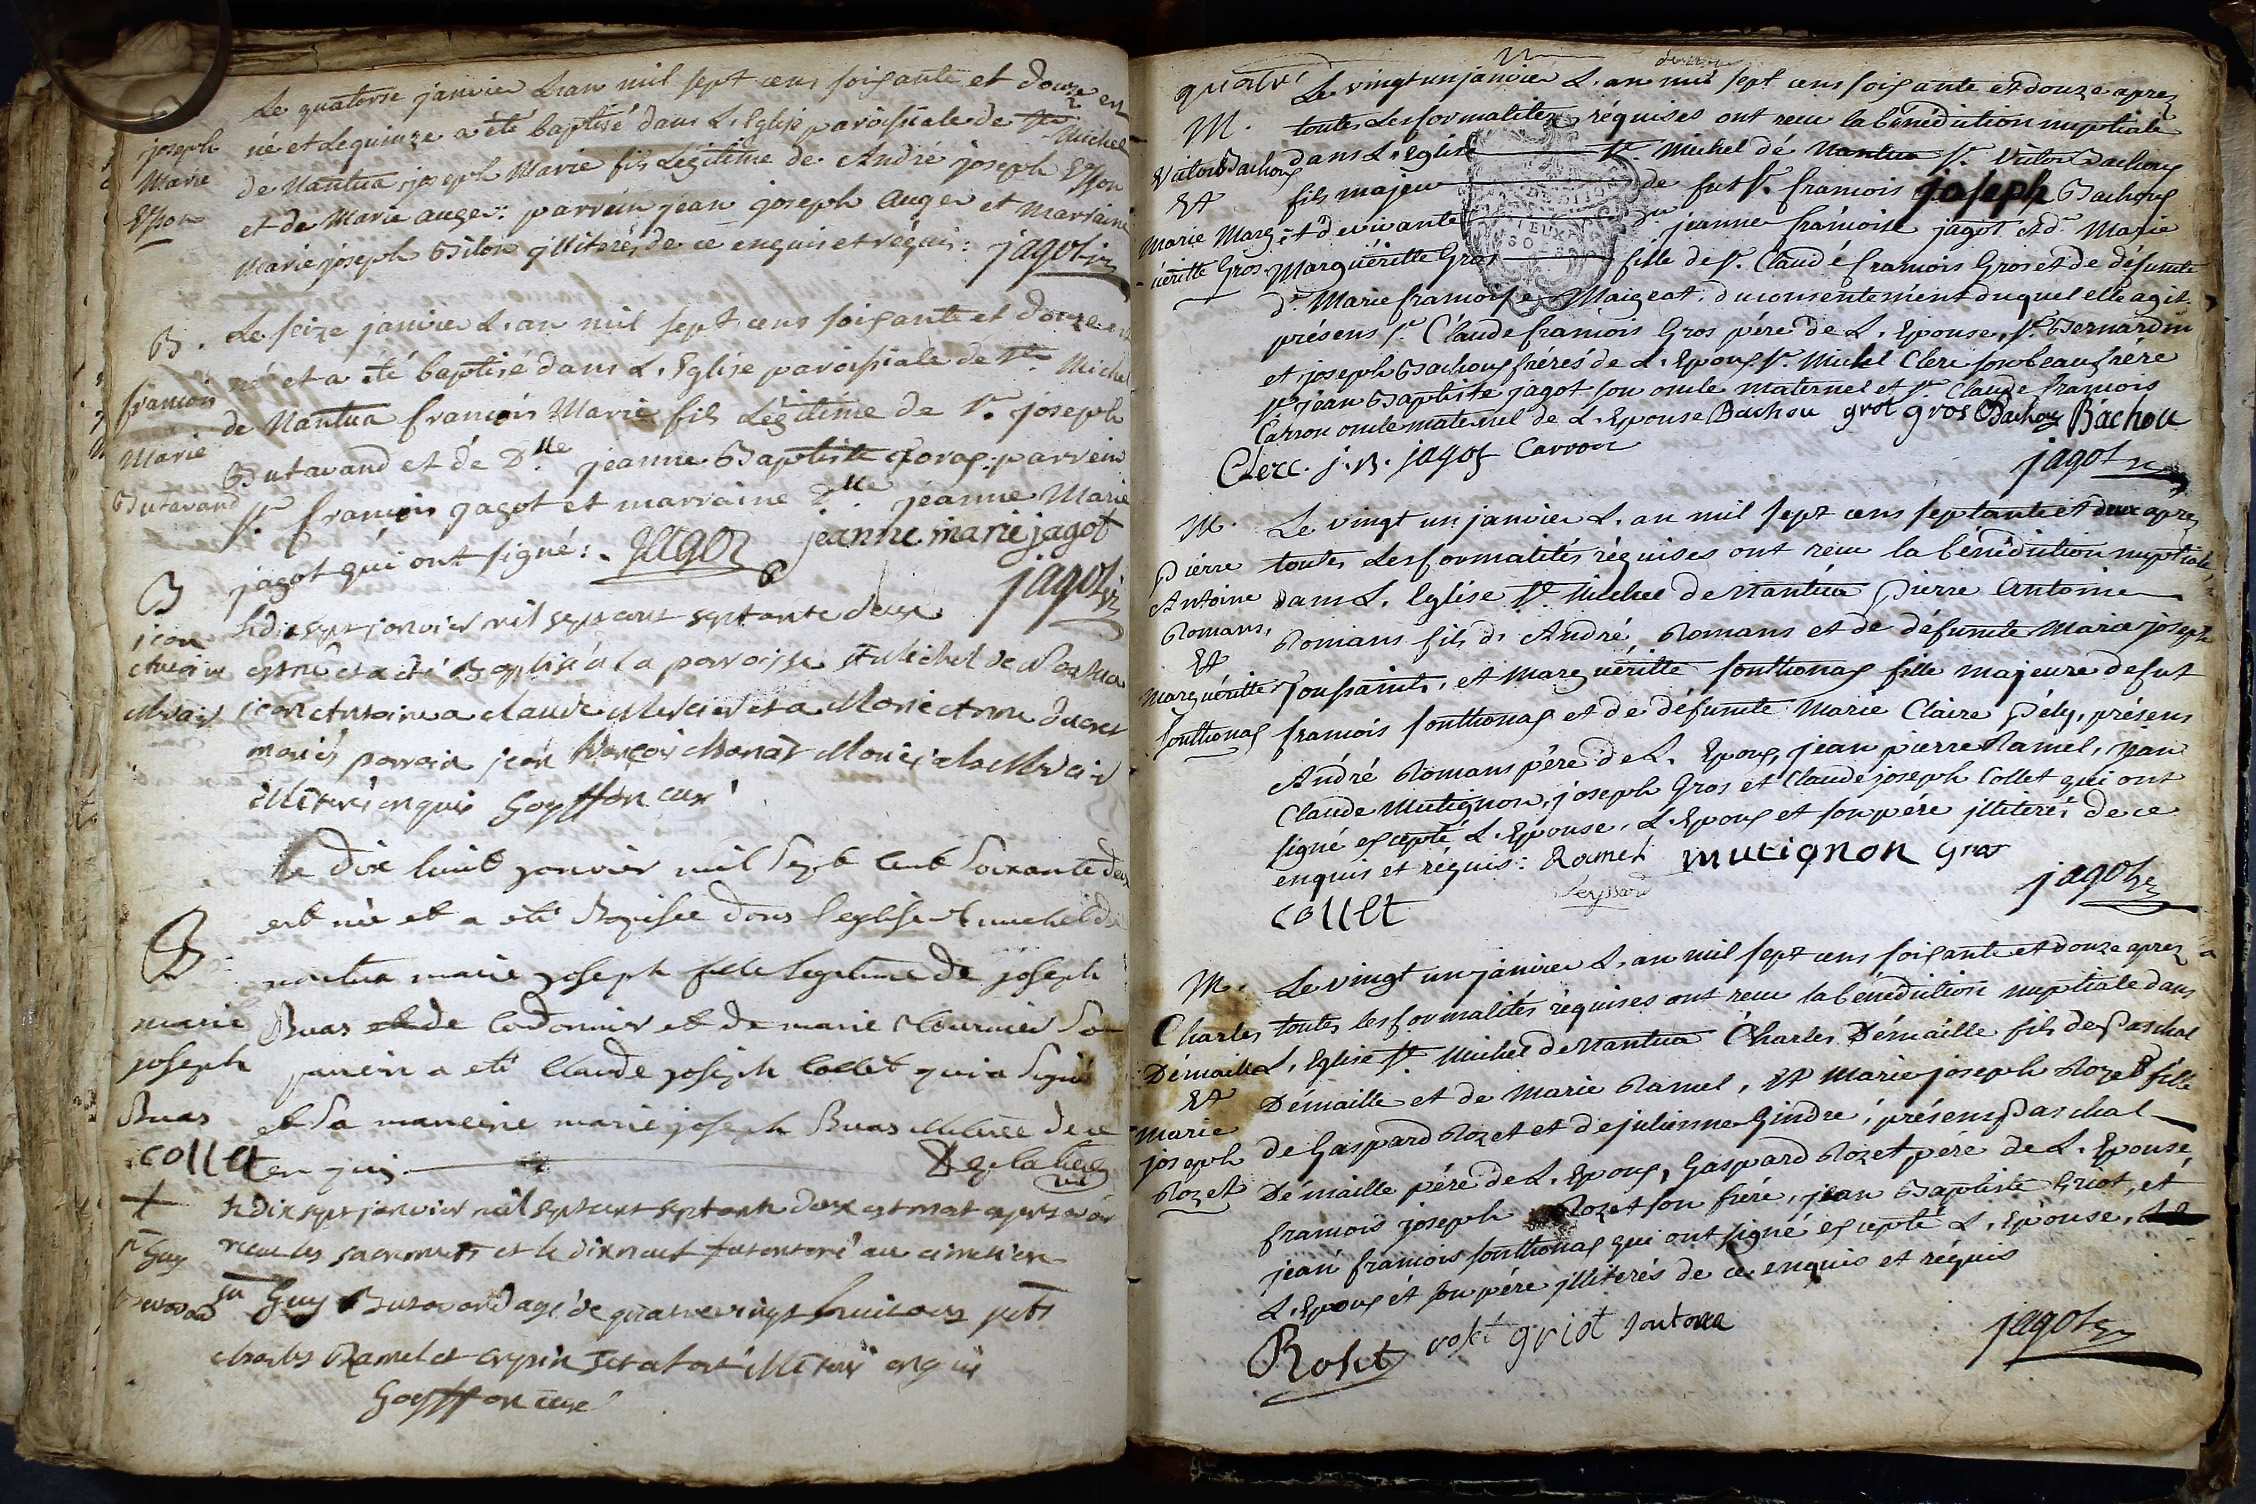 Le quatorse janvier L'an mil sept cens soixante et douze est
né et Le quinze a été baptisé dans L'Eglise paroissiale de St. Michel
joseph
Marie
de Nantua joseph Marie fils Légitime de André joseph
et de Marie auger: parrein jean joseph auger et marraine
Marie joseph Bilon illiterés de ce enquis et réquis: jagot
B.
Le seize janvier L'an mil sept cens soixante et douze est
né et a été baptisé dans L'Eglise paroissiale de St. Michel
francois
Marie
Butavand
de Nantua francois Marie fils Légitime de Sr. joseph
Butavand et de Dlle jeanne Baptiste parrein
Sr. francois jagot et marraine Dlle jeanne Marie
jagot qui ont signé: jagot jeanne marie jagot
jagot
B
jean
Antoine
le dix sept janvier mil sept cent septante deux
est né et a été Baptisé a la paroisse St Michel de Nantua
jean Antoine a claude Mercier et a Marie Anne
mariés parrain jean francois
illiteré enquis Goyffon curé
Le dix huit janvier mil sept cent soixante deux
est née et a été Baptisée dans l'eglise st michel de
B
marie
joseph
Buas
nantua marie joseph fille legitime de joseph
Buas de Cordonnier et de marie son
parrein a eté Claude joseph Collet qui a signé
et sa marreine marie joseph Buas illiterée de ce
collet
en quis
le dix sept janvier mil sept cent septante deux est mort apres avoir
recu les sacrements et le dix neuf fut enterré au cimetiere
Sr Guy
Sr Guy Butavand agé de quatre vingt huit ans pnts
charles Ramel et illiteré enquis
Goyffon curé
quatre
Le vingt un janvier L'an mil sept cens soixante et douze apres
M.
Victor Bachoux
Et
Marie Marg
uéritte Gros
toutes Les formalités réquises ont recu la bénédiction nuptiale
dans L'Eglise St. Michel de Nantua Sr. Victor Bachoux
fils majeur de fut Sr. francois joseph Bachoux
et de vivante jeanne francoise jagot et d. Marie
Marguéritte Gros fille de Sr. Claude francois Gros et de défunte
d. Marie francoise Maigrat: du consentement duquel elle agit
présens Sr. Claude francois Gros pére de L'Epouse, Sr. Bernardin
et joseph Bachoux fréres de L'Epoux Sr. Michel Clerc son beaufrére
Sr. jean Baptiste jagot son oncle maternel et Sr. Claude francois
Carron oncle maternel de L'Epouse Bachou gros gros Bachoux Bachou
Clerc. j. B. jagot Carron
jagot
M.
Pierre
Antoine
Romans,
Et
Marguéritte
Sonthonax
Le vingt un janvier L'an mil sept cens septante et deux apres
toutes Les formalités réquises ont recu la bénédiction nuptiale,
dans L'Eglise St. Michel de Nantua Pierre Antoine
Romans fils de André Romans et de défunte Marie joseph
Toussaints, et Marguéritte Sonthonax fille majeure de fut
francois Sonthonax et de défunte Marie Claire Pély, présens
André Romans pére de L'Epoux, jean pierre Ramel, jean
Claude Mutignon, joseph Gros et Claude joseph Collet qui ont
signé excepté L'Epouse, L'Epoux et son pére illiterés de ce
enquis et réquis: Ramel mutignon Gros
collet
jagot
M.
Charles
Démaille
Et
Marie
joseph
Rozet
Le vingt un janvier L'an mil sept cens soixante et douze apres
toutes les formalités réquises ont recu la bénédiction nuptiale dans
L'Eglise St. Michel de Nantua Charles Démaille fils de Paschal
Démaille et de Marie Ramel, Et Marie joseph Rozet fille
de Gaspard Rozet et de julienne Gindre, présens Paschal
Démaille pére de L'Epoux, Gaspard Rozet pere de L'Epouse
francois joseph Rozet son frére, jean Baptiste Griot, et
jean francois Sonthonax qui ont signé excepté L'Epouse,
L'Epoux et son pére illiterés de ce enquis et réquis
Roset roset griot sontona
jagot